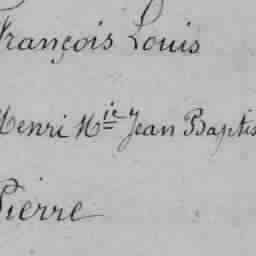 François Louis
Henri Mie Jean Baptis
Pierre